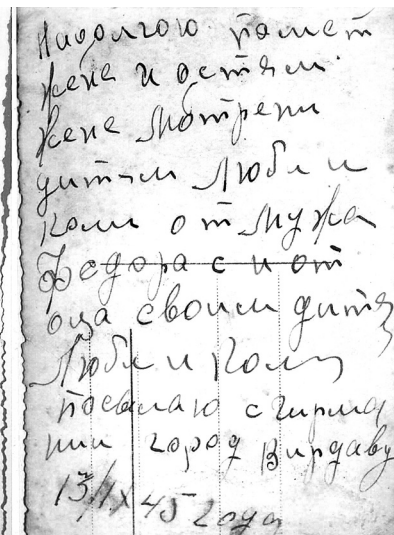 Надолгою памет
жене и детям
жене Мотрени
дитям Любе и
коли от мужа
Федора с и от
оца своим дитя
Любе и Коли
посылаю с Гирма
нии город Вирдаву
13/IX 45 года